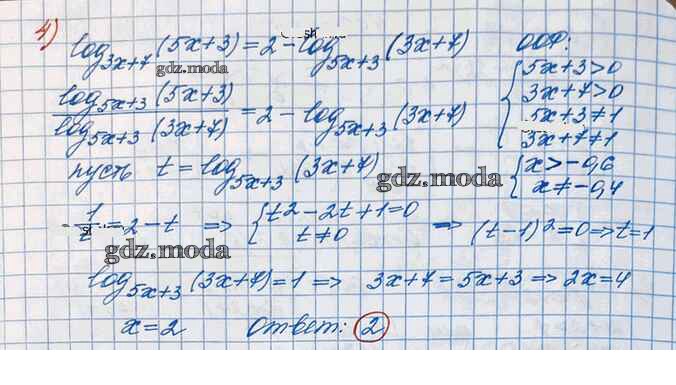 4)
log_{3x+7} (5x+3) = 2 - log_{5x+3} (3x+7)   ООФ:
log_{5x+3} (5x+3) / log_{5x+3} (3x+7) = 2 - log_{5x+3} (3x+7)
{ 5x+3>0
3x+7>0
5x+3≠1
3x+7≠1
gdz.moda
пусть t = log_{5x+3} (3x+7)
{ x>-0,6
x≠-0,4
gdz.moda
1/t = 2 - t ⇒ { t² - 2t + 1 = 0
t≠0
⇒ (t-1)² = 0 ⇒ t=1
gdz.moda
log_{5x+3} (3x+7) = 1 ⇒ 3x+7 = 5x+3 ⇒ 2x=4
x=2   ответ: 2